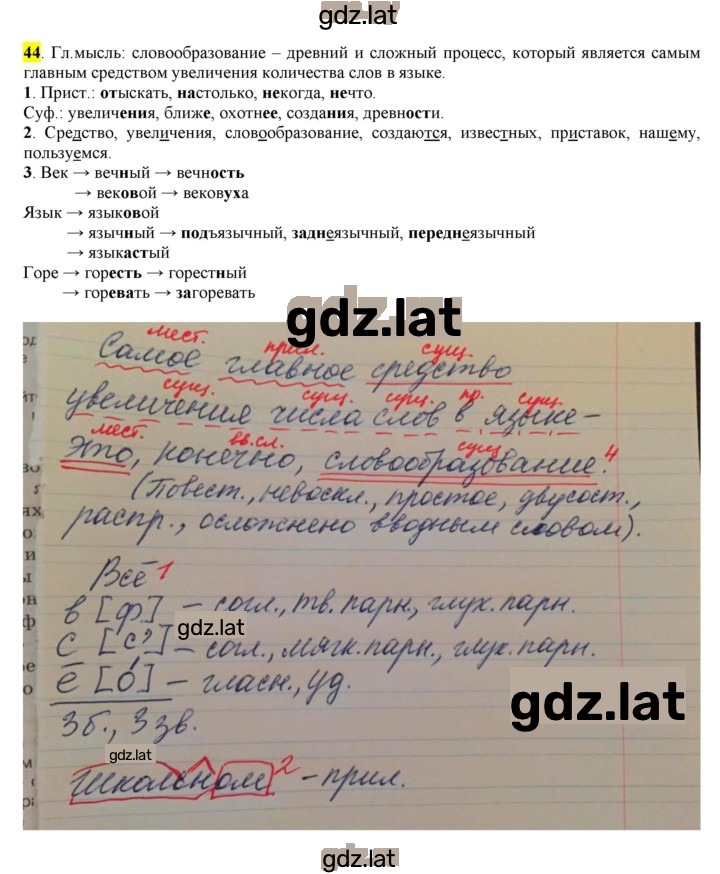 gdz.lat
44. Гл.мысль: словообразование – древний и сложный процесс, который является самым
главным средством увеличения количества слов в языке.
1. Прист.: отыскать, настолько, некогда, нечто.
Суф.: увеличения, ближе, охотнее, создания, древности.
2. Средство, увеличения, словообразование, создаются, известных, приставок, нашему,
пользуемся.
3. Век → вечный → вечность
→ вековой → вековуха
Язык → языковой
→ язычный → подъязычный, заднеязычный, переднеязычный
→ языкастый
Горе → горесть → горестный
→ горевать → загоревать
gdz.lat
мест. прил. сущ.
Самое главное средство
сущ. сущ. сущ. пр. сущ.
увеличения числа слов в языке –
мест. вв.сл. сущ
это, конечно, словообразование. 4
(Повест., невоскл., простое, двусост.,
распр., осложнено вводным словом).
Всё 1
в [ф] – согл., тв. парн., глух. парн.
с [с'] – согл., мягк. парн., глух. парн.
gdz.lat
ё [о́] – гласн., уд.
gdz.lat
3 б., 3 зв.
gdz.lat
школьном 2 – прил.
gdz.lat